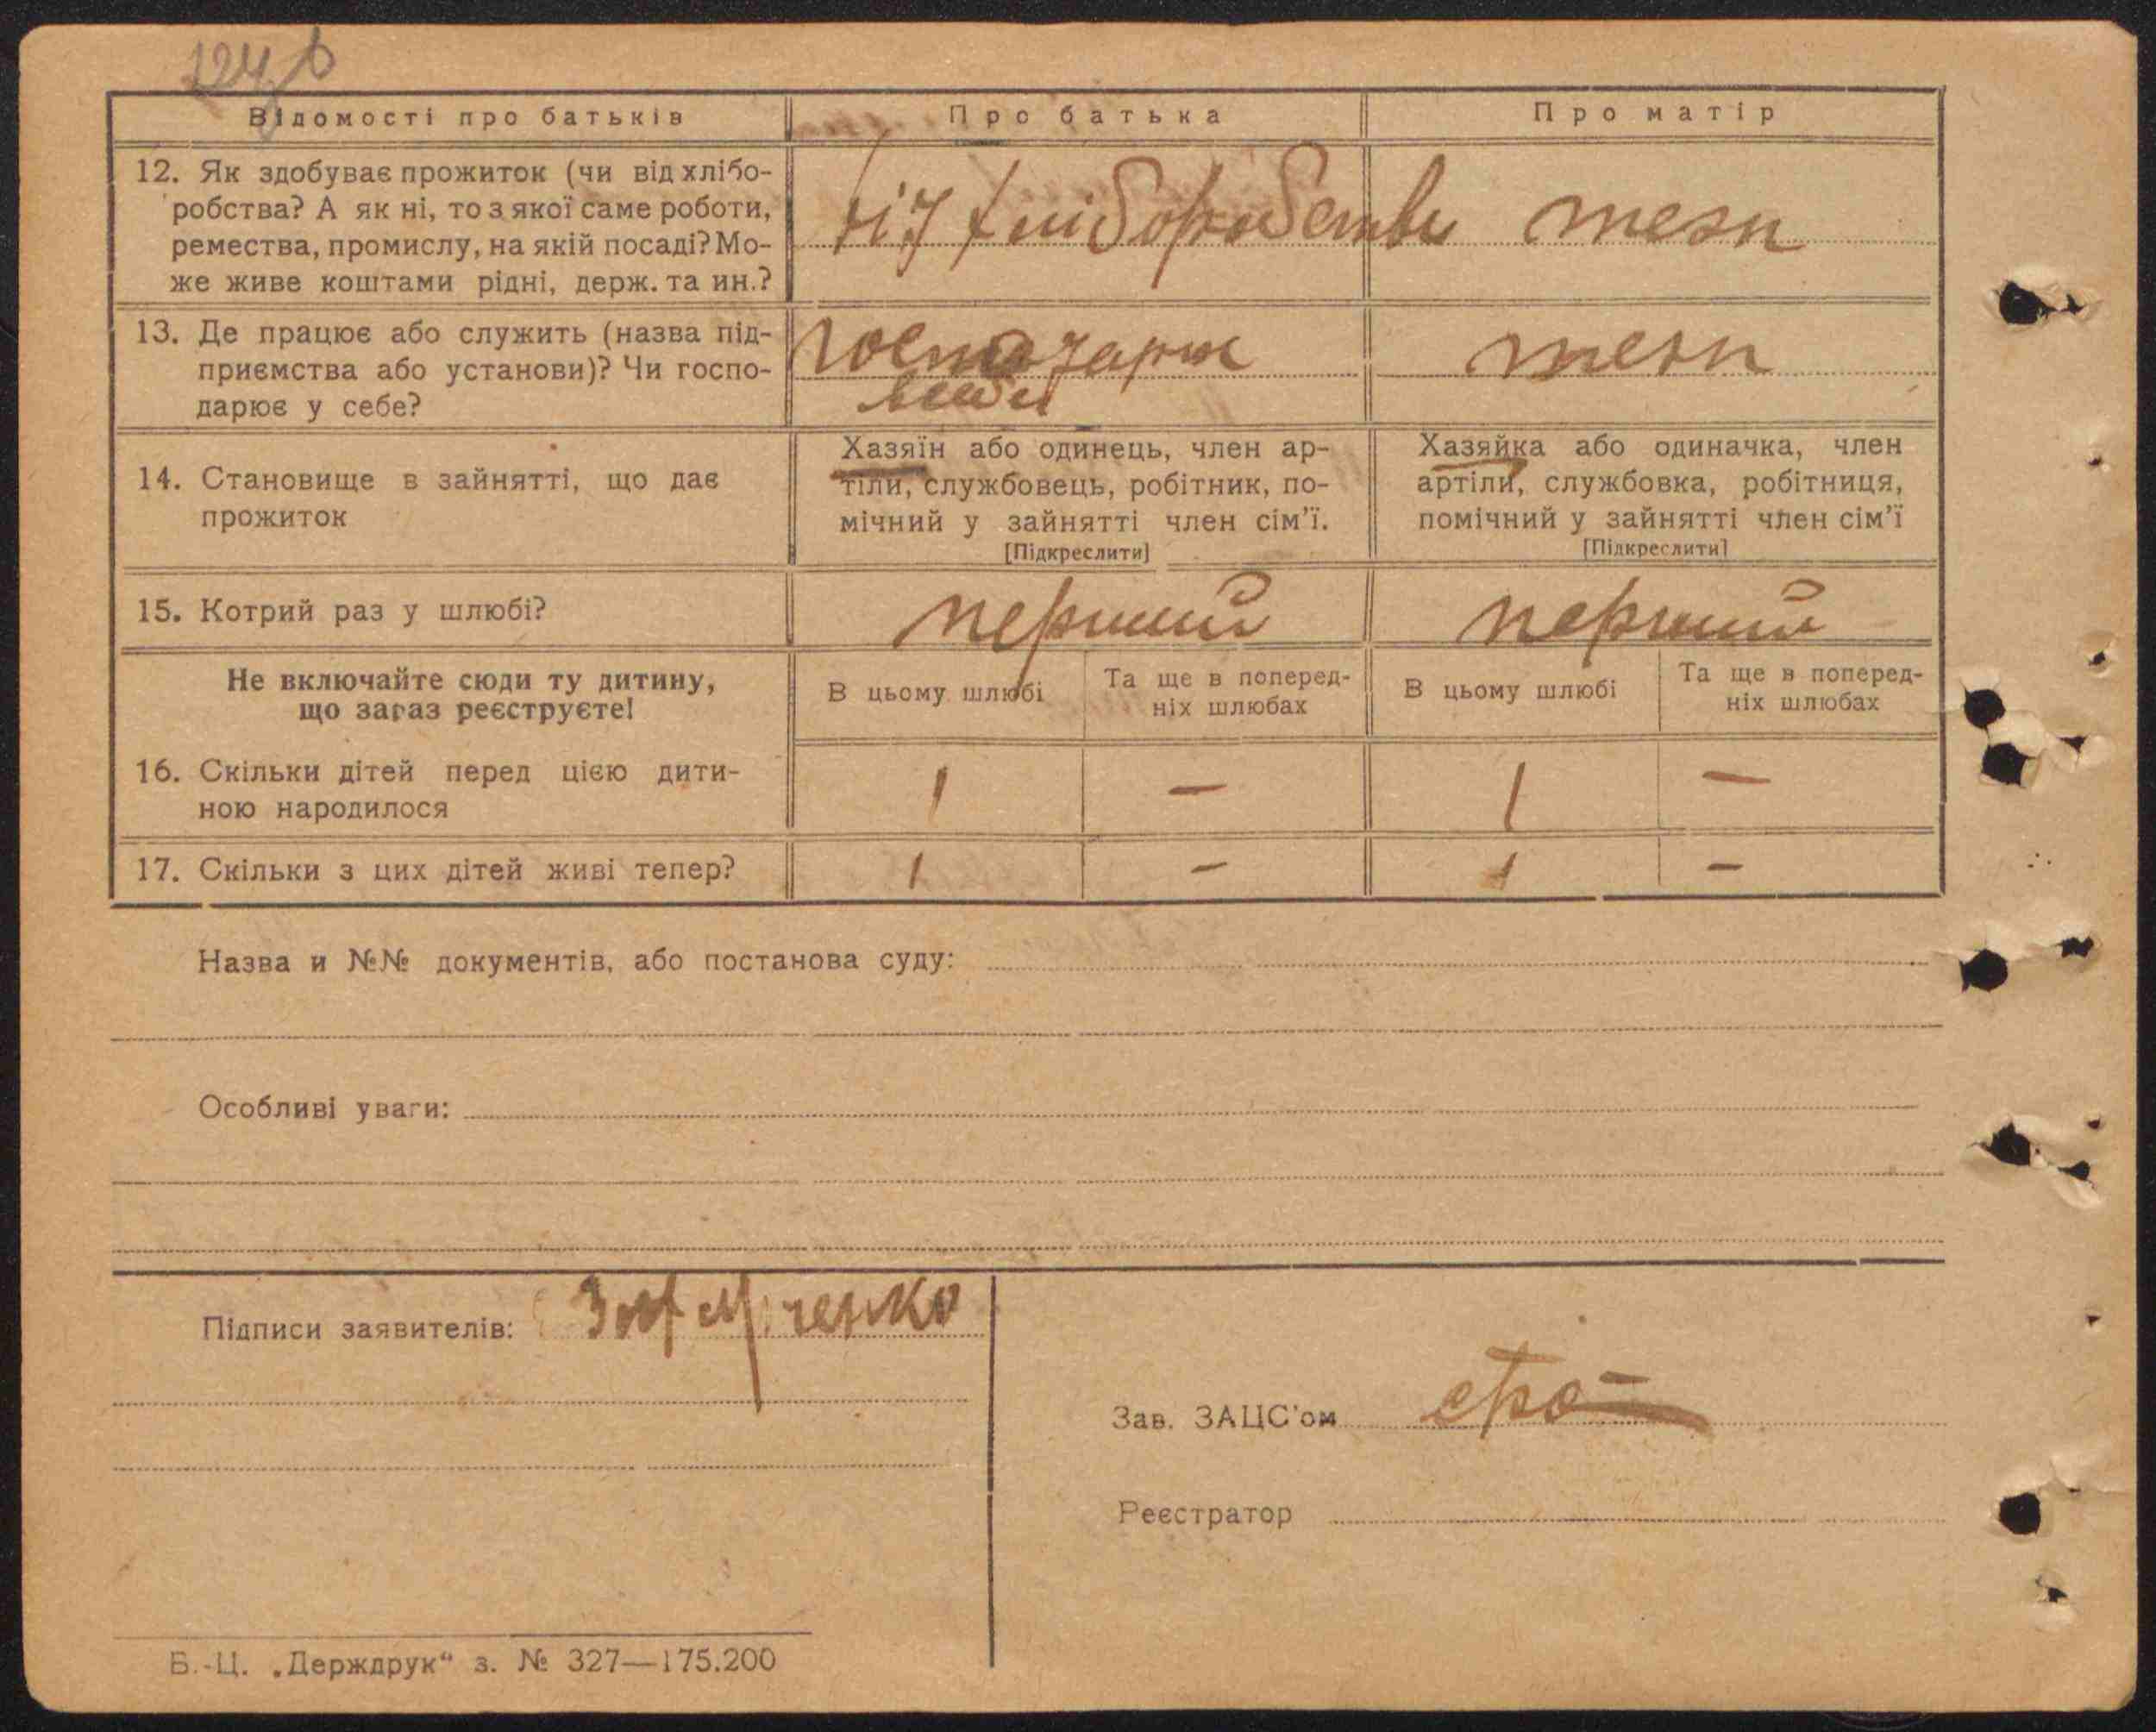 Відомості про батьків
Про батька
Про матір
12. Як здобуває прожиток (чи від хлібо-
робства? А як ні, то з якої саме роботи,
ремества, промислу, на якій посаді? Мо-
же живе коштами рідні, держ. та ин.?
від хліборобства
тези
13. Де працює або служить (назва під-
приємства або установи)? Чи госпо-
дарює у себе?
господарює
в себе
тези
14. Становище в зайнятті, що дає
прожиток
Хазяїн або одинець, член ар-
тіли, службовець, робітник, по-
мічний у зайнятті член сім'ї.
[Підкреслити]
Хазяйка або одиначка, член
артіли, службовка, робітниця,
помічний у зайнятті член сім'ї
[Підкреслити]
15. Котрий раз у шлюбі?
перший
перший
Не включайте сюди ту дитину,
що зараз реєструєте!
В цьому шлюбі
Та ще в поперед-
ніх шлюбах
В цьому шлюбі
Та ще в поперед-
ніх шлюбах
16. Скільки дітей перед цією дити-
ною народилося
1
—
1
—
17. Скільки з цих дітей живі тепер?
1
—
1
—
Назва и №№ документів, або постанова суду:
Особливі уваги:
Підписи заявителів:
Зав. ЗАЦС'ом
Реєстратор
Б.-Ц. „Держдрук“ з. № 327—175.200